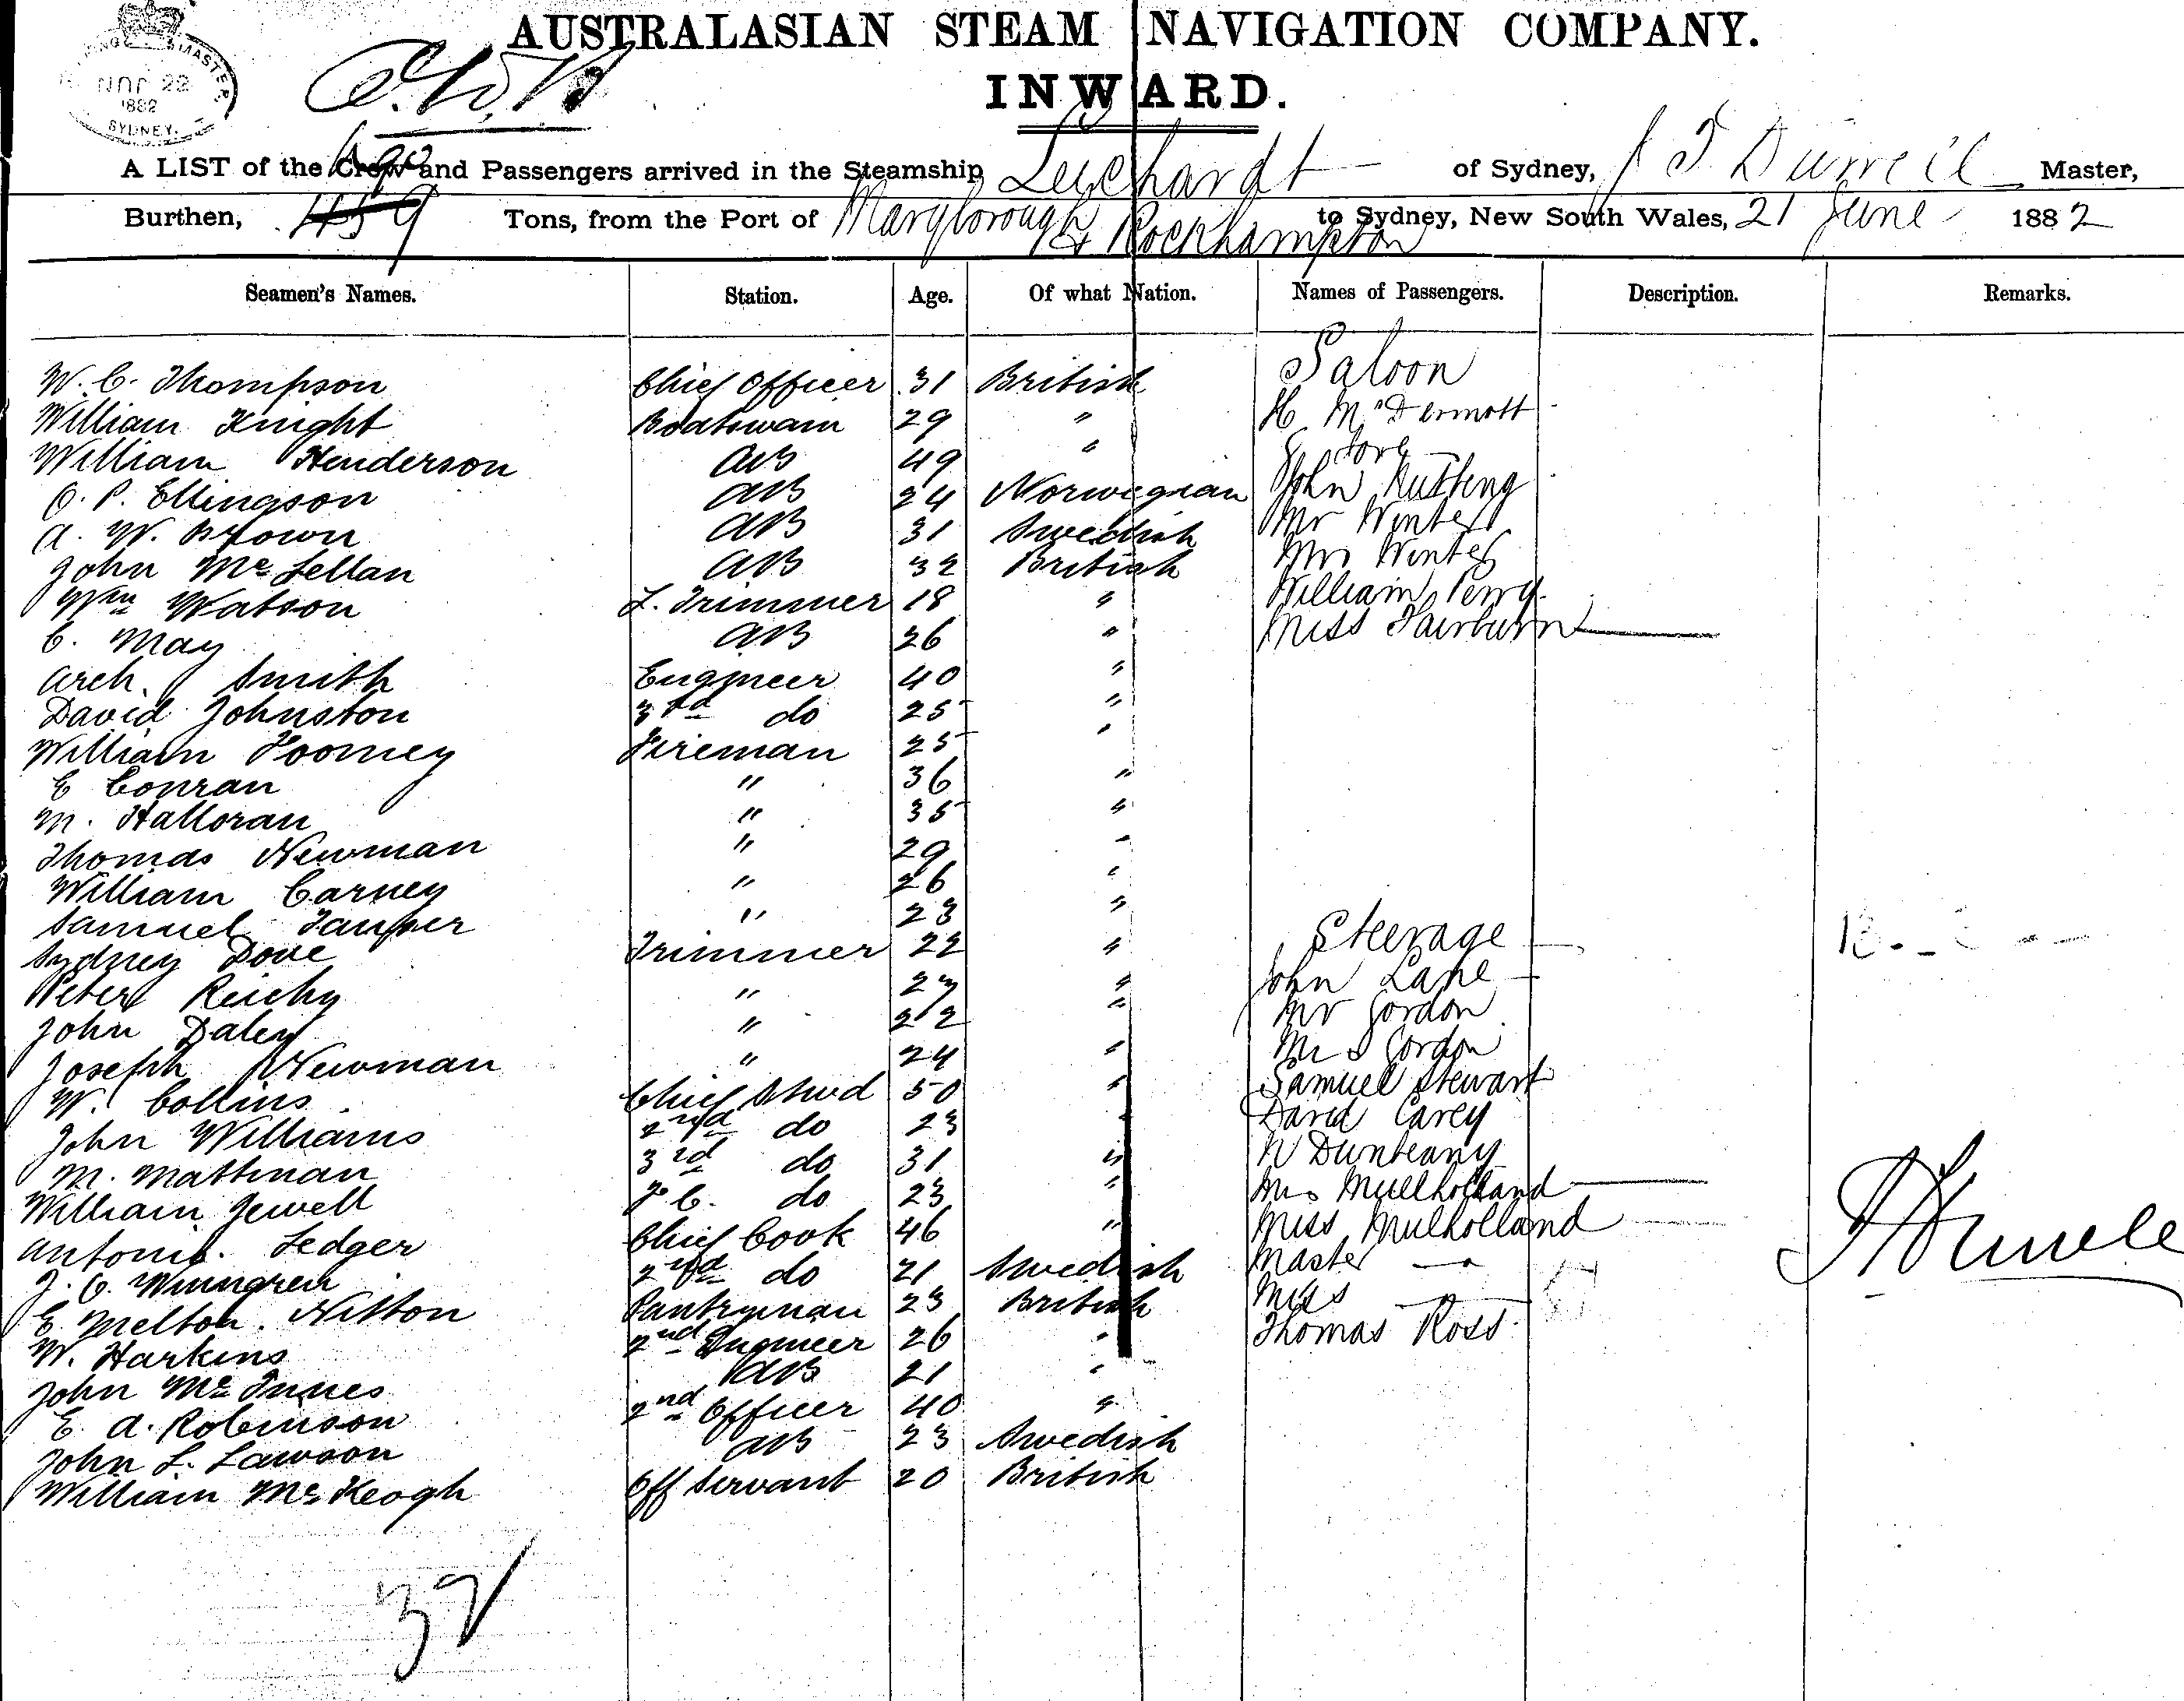 AUSTRALASIAN STEAM NAVIGATION COMPANY.
INWARD.
SYDNEY.
1882
A LIST of the Crew and Passengers arrived in the Steamship Leichardt of Sydney, Master,
Burthen, 459 Tons, from the Port of Maryborough & Rockhampton to Sydney, New South Wales, 21 June 1882
Seamen's Names. Station. Age. Of what Nation. Names of Passengers. Description. Remarks.
Saloon
W. C. Thompson Chief Officer 31 British
William Knight Boatswain 29 " H McDermott
William Henderson AB 49 "
O. P. Ellingson AB 24 Norwegian John
A. W. Brown AB 31 Swedish Mr Winter
John McLellan AB 32 British Mrs Winter
Wm Watson L. Trimmer 18 " William Perry
C. May AB 26 " Miss Fairburn
Arch. Smith Engineer 40 "
David Johnston 3rd do 25 "
William Toomey Fireman 25 "
E Conran " 36 "
M. Halloran " 35 "
Thomas Newman " 29 "
William Carney " 26 "
Samuel " 23 "
Steerage
Sydney Dove Trimmer 22 " John Lane
Peter " 23 " Mr Gordon
John Daley " 22 "
Joseph Newman " 24 " Mrs Gordon
W. Collins Chief Stwd 50 " Samuel Stewart
John Williams 2nd do 23 " David Carey
M. Mattinan 3rd do 31 " N
William Jewell F. C. do 23 " Mrs Mullholland
Antonio Ledger Chief Cook 46 " Miss Mulholland
J. O. Winngren 2nd do 21 Swedish Master "
E Melton. Nitton Pantryman 23 British Miss "
W. Harkins 2nd Engineer 26 " Thomas Ross
John McInnes AB 21 "
E. A. Robinson 2nd Officer 40 "
John L. Lawson AB 23 Swedish
William McKeogh Off Servant 20 British
32